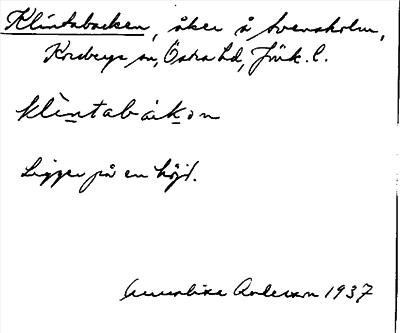 Klintabacken, åker å Svensholm,
Korsberga sn, Östra hd, Jönk. l.
klìntabákon
Ligger på en höjd.
Annalisa Andersson 1937